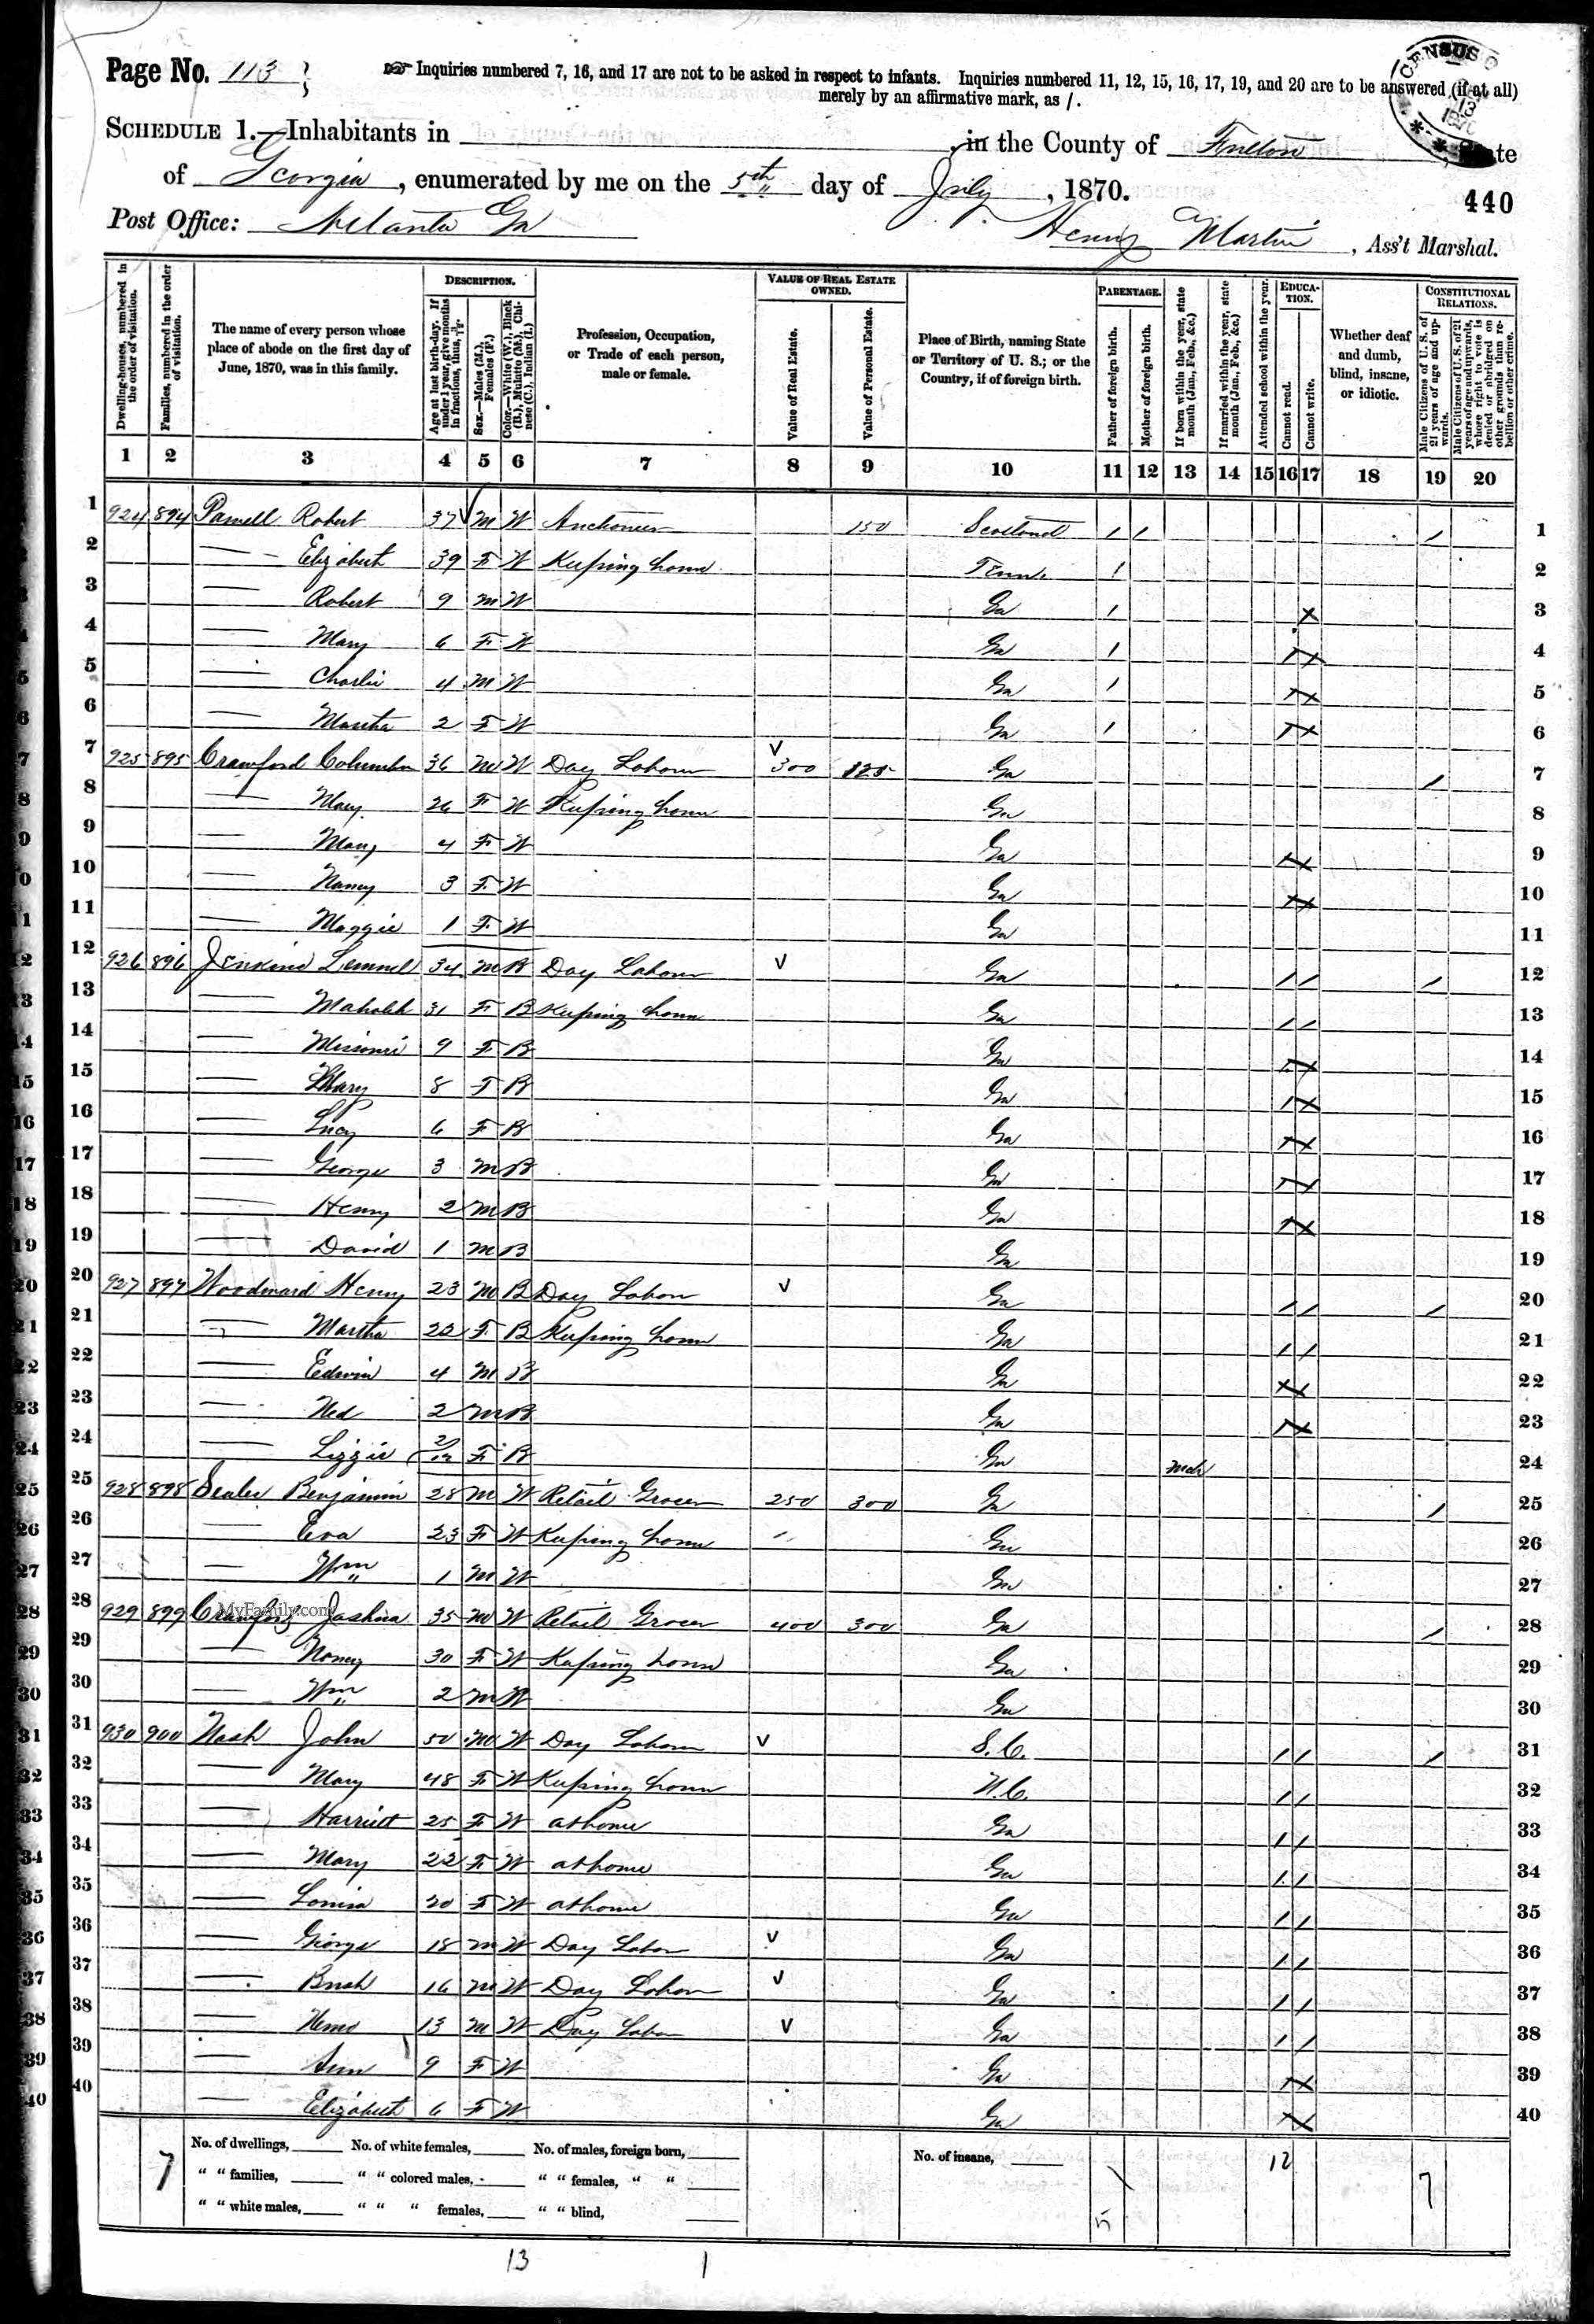 Page No. 113
Inquiries numbered 7, 16, and 17 are not to be asked in respect to infants. Inquiries numbered 11, 12, 15, 16, 17, 19, and 20 are to be answered (if at all)
merely by an affirmative mark, as /.
SCHEDULE 1.—Inhabitants in , in the County of Fulton, State
of Georgia, enumerated by me on the 5th day of July, 1870.
440
Post Office: Atlanta Ga
Henry Martin, Ass't Marshal.
Dwelling-houses, numbered in the order of visitation.
Families, numbered in the order of visitation.
The name of every person whose place of abode on the first day of June, 1870, was in this family.
DESCRIPTION.
Age at last birth-day. If under 1 year, give months in fractions, thus, 3/12.
Sex.—Males (M.), Females (F.)
Color.—White (W.), Black (B.), Mulatto (M.), Chinese (C.), Indian (I.)
Profession, Occupation, or Trade of each person, male or female.
VALUE OF REAL ESTATE OWNED.
Value of Real Estate.
Value of Personal Estate.
Place of Birth, naming State or Territory of U. S.; or the Country, if of foreign birth.
PARENTAGE.
Father of foreign birth.
Mother of foreign birth.
If born within the year, state month (Jan., Feb., &c.)
If married within the year, state month (Jan., Feb., &c.)
Attended school within the year.
EDUCATION.
Cannot read.
Cannot write.
Whether deaf and dumb, blind, insane, or idiotic.
CONSTITUTIONAL RELATIONS.
Male Citizens of U. S. of 21 years of age and upwards.
Male Citizens of U. S. of 21 years of age and upwards, whose right to vote is denied or abridged on other grounds than rebellion or other crime.
1 2 3 4 5 6 7 8 9 10 11 12 13 14 15 16 17 18 19 20
1 924 894 Robert 37 M W 150 Scotland / / / 1
2 — Elizabeth 39 F W Keeping house Tenn. / 2
3 — Robert 9 M W Ga / 3
4 — Mary 6 F W Ga / 4
5 — Charlie 4 M W Ga / 5
6 — Martha 2 F W Ga / 6
7 925 895 Crawford Columbus 36 M W Day Laborer 300 125 Ga / 7
8 — Mary 26 F W Keeping house Ga 8
9 — Mary 4 F W Ga 9
10 — Nancy 3 F W Ga 10
11 — Maggie 1 F W Ga 11
12 926 896 Jenkins Lemuel 34 M B Day Laborer Ga / / / 12
13 — Mahalah 31 F B Keeping house Ga / / 13
14 — Missouri 9 F B Ga 14
15 — Mary 8 F B Ga 15
16 — Lucy 6 F B Ga 16
17 — George 3 M B Ga 17
18 — Henry 2 M B Ga 18
19 — David 1 M B Ga 19
20 927 897 Woodward Henry 23 M B Day Labor Ga / / / 20
21 — Martha 22 F B Keeping house Ga / / 21
22 — Edwin 4 M B Ga 22
23 — Ned 2 M B Ga 23
24 — Lizzie 2/12 F B Ga Mch 24
25 928 898 Benjamin 28 M W Retail Grocer 250 300 Ga / 25
26 — Eva 23 F W Keeping house Ga 26
27 — Wm 1 M W Ga 27
28 929 899 Crawford Joshua 35 M W Retail Grocer 400 300 Ga / 28
MyFamily.com
29 — Nancy 30 F W Keeping house Ga 29
30 — Wm 2 M W Ga 30
31 930 900 Nash John 50 M W Day Laborer S. C. / / / 31
32 — Mary 48 F W Keeping house N. C. / / 32
33 — Harriett 25 F W at home Ga / / 33
34 — Mary 22 F W at home Ga / / 34
35 — Louisa 20 F W at home Ga / / 35
36 — George 18 M W Day Labor Ga / / 36
37 — 16 M W Day Labor Ga / / 37
38 — 13 M W Day Labor Ga / / 38
39 — Ann 9 F W Ga 39
40 — Elizabeth 6 F W Ga 40
7
No. of dwellings, No. of white females, No. of males, foreign born, No. of insane,
" " families, " " colored males, " " females, " "
" " white males, " " " females, " " blind,
5 12 7
13 1